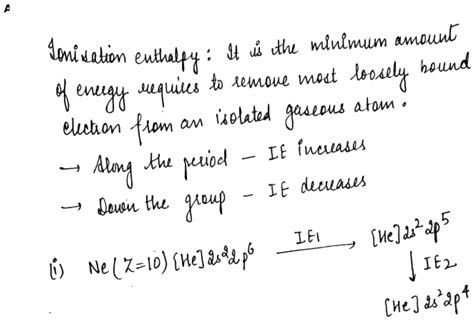 Ionisation enthalpy : It is the minimum amount
of energy requires to remove most loosely bound
electron from an isolated gaseous atom.
→ Along the period – IE increases
→ Down the group – IE decreases
(i) Ne (Z=10) [He] 2s² 2p⁶ —IE₁→ [He] 2s² 2p⁵
↓ IE₂
[He] 2s² 2p⁴